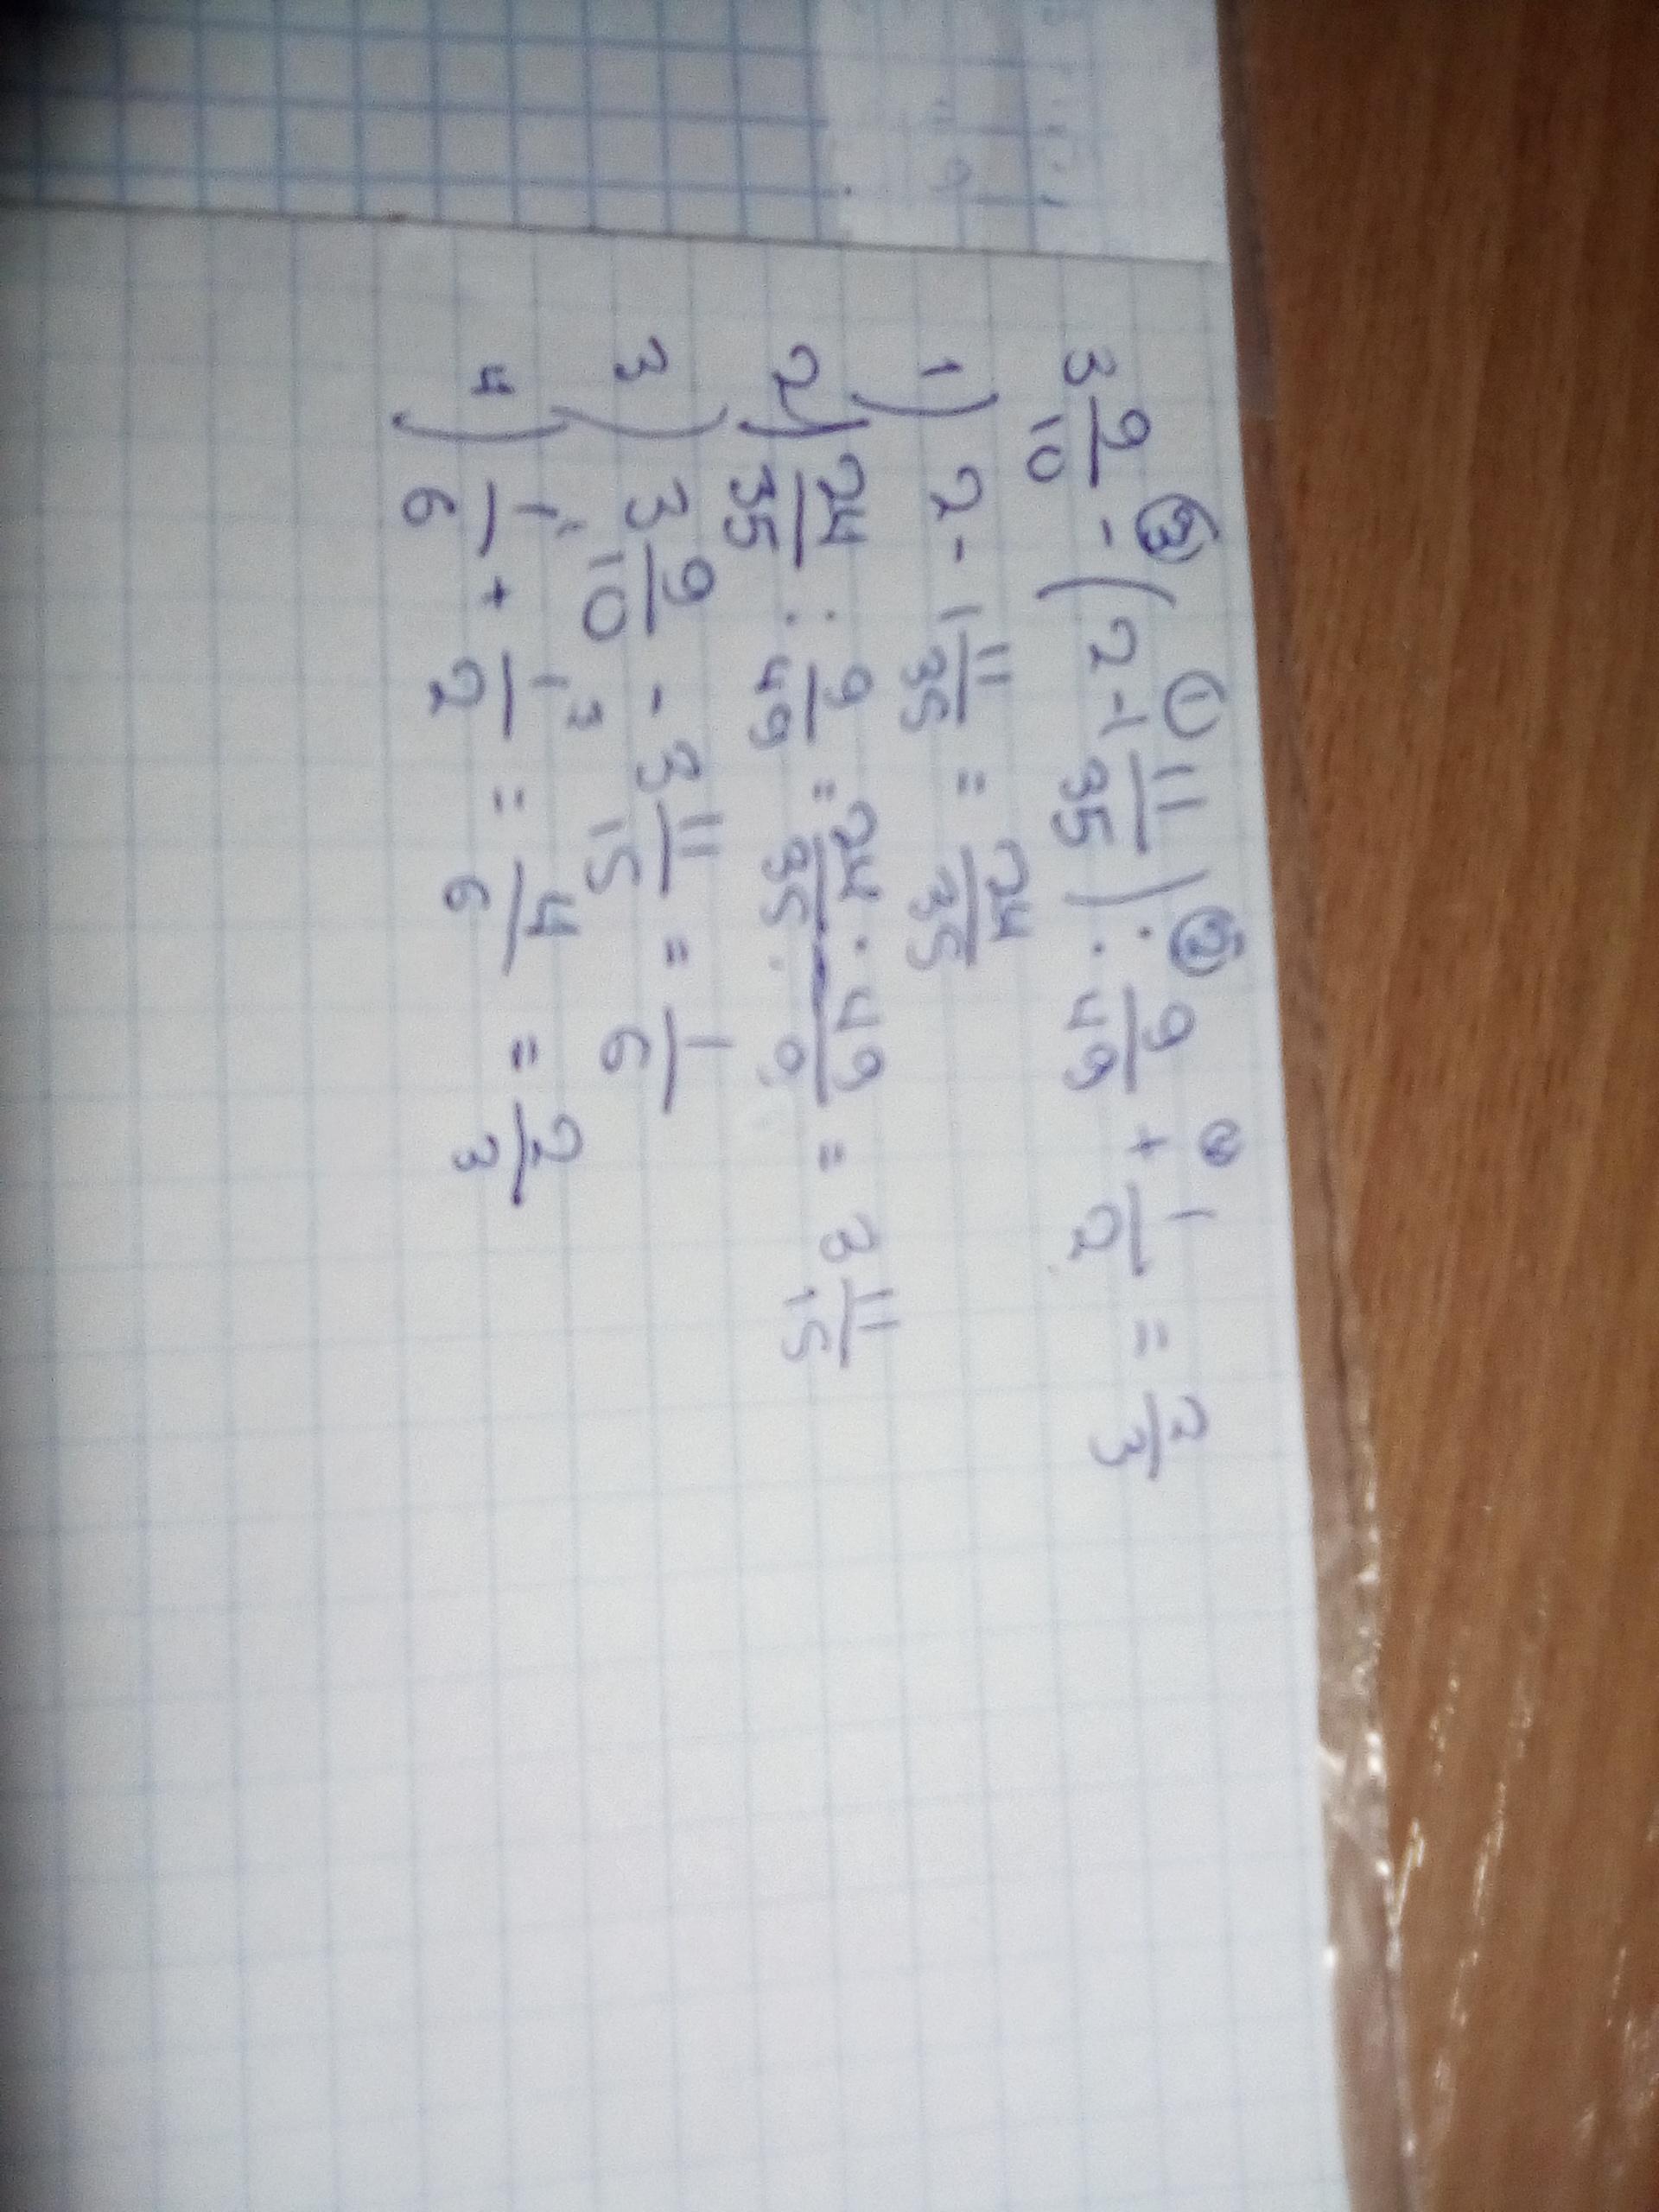 3 9/10 - (2 - 1 11/35) : 9/49 + 1/2 = 2/3
1) 2 - 1 11/35 = 24/35
2) 24/35 : 9/49 = 24/35 · 49/9 = 3 11/15
3) 3 9/10 - 3 11/15 = 1/6
4) 1/6 + 1/2 = 4/6 = 2/3